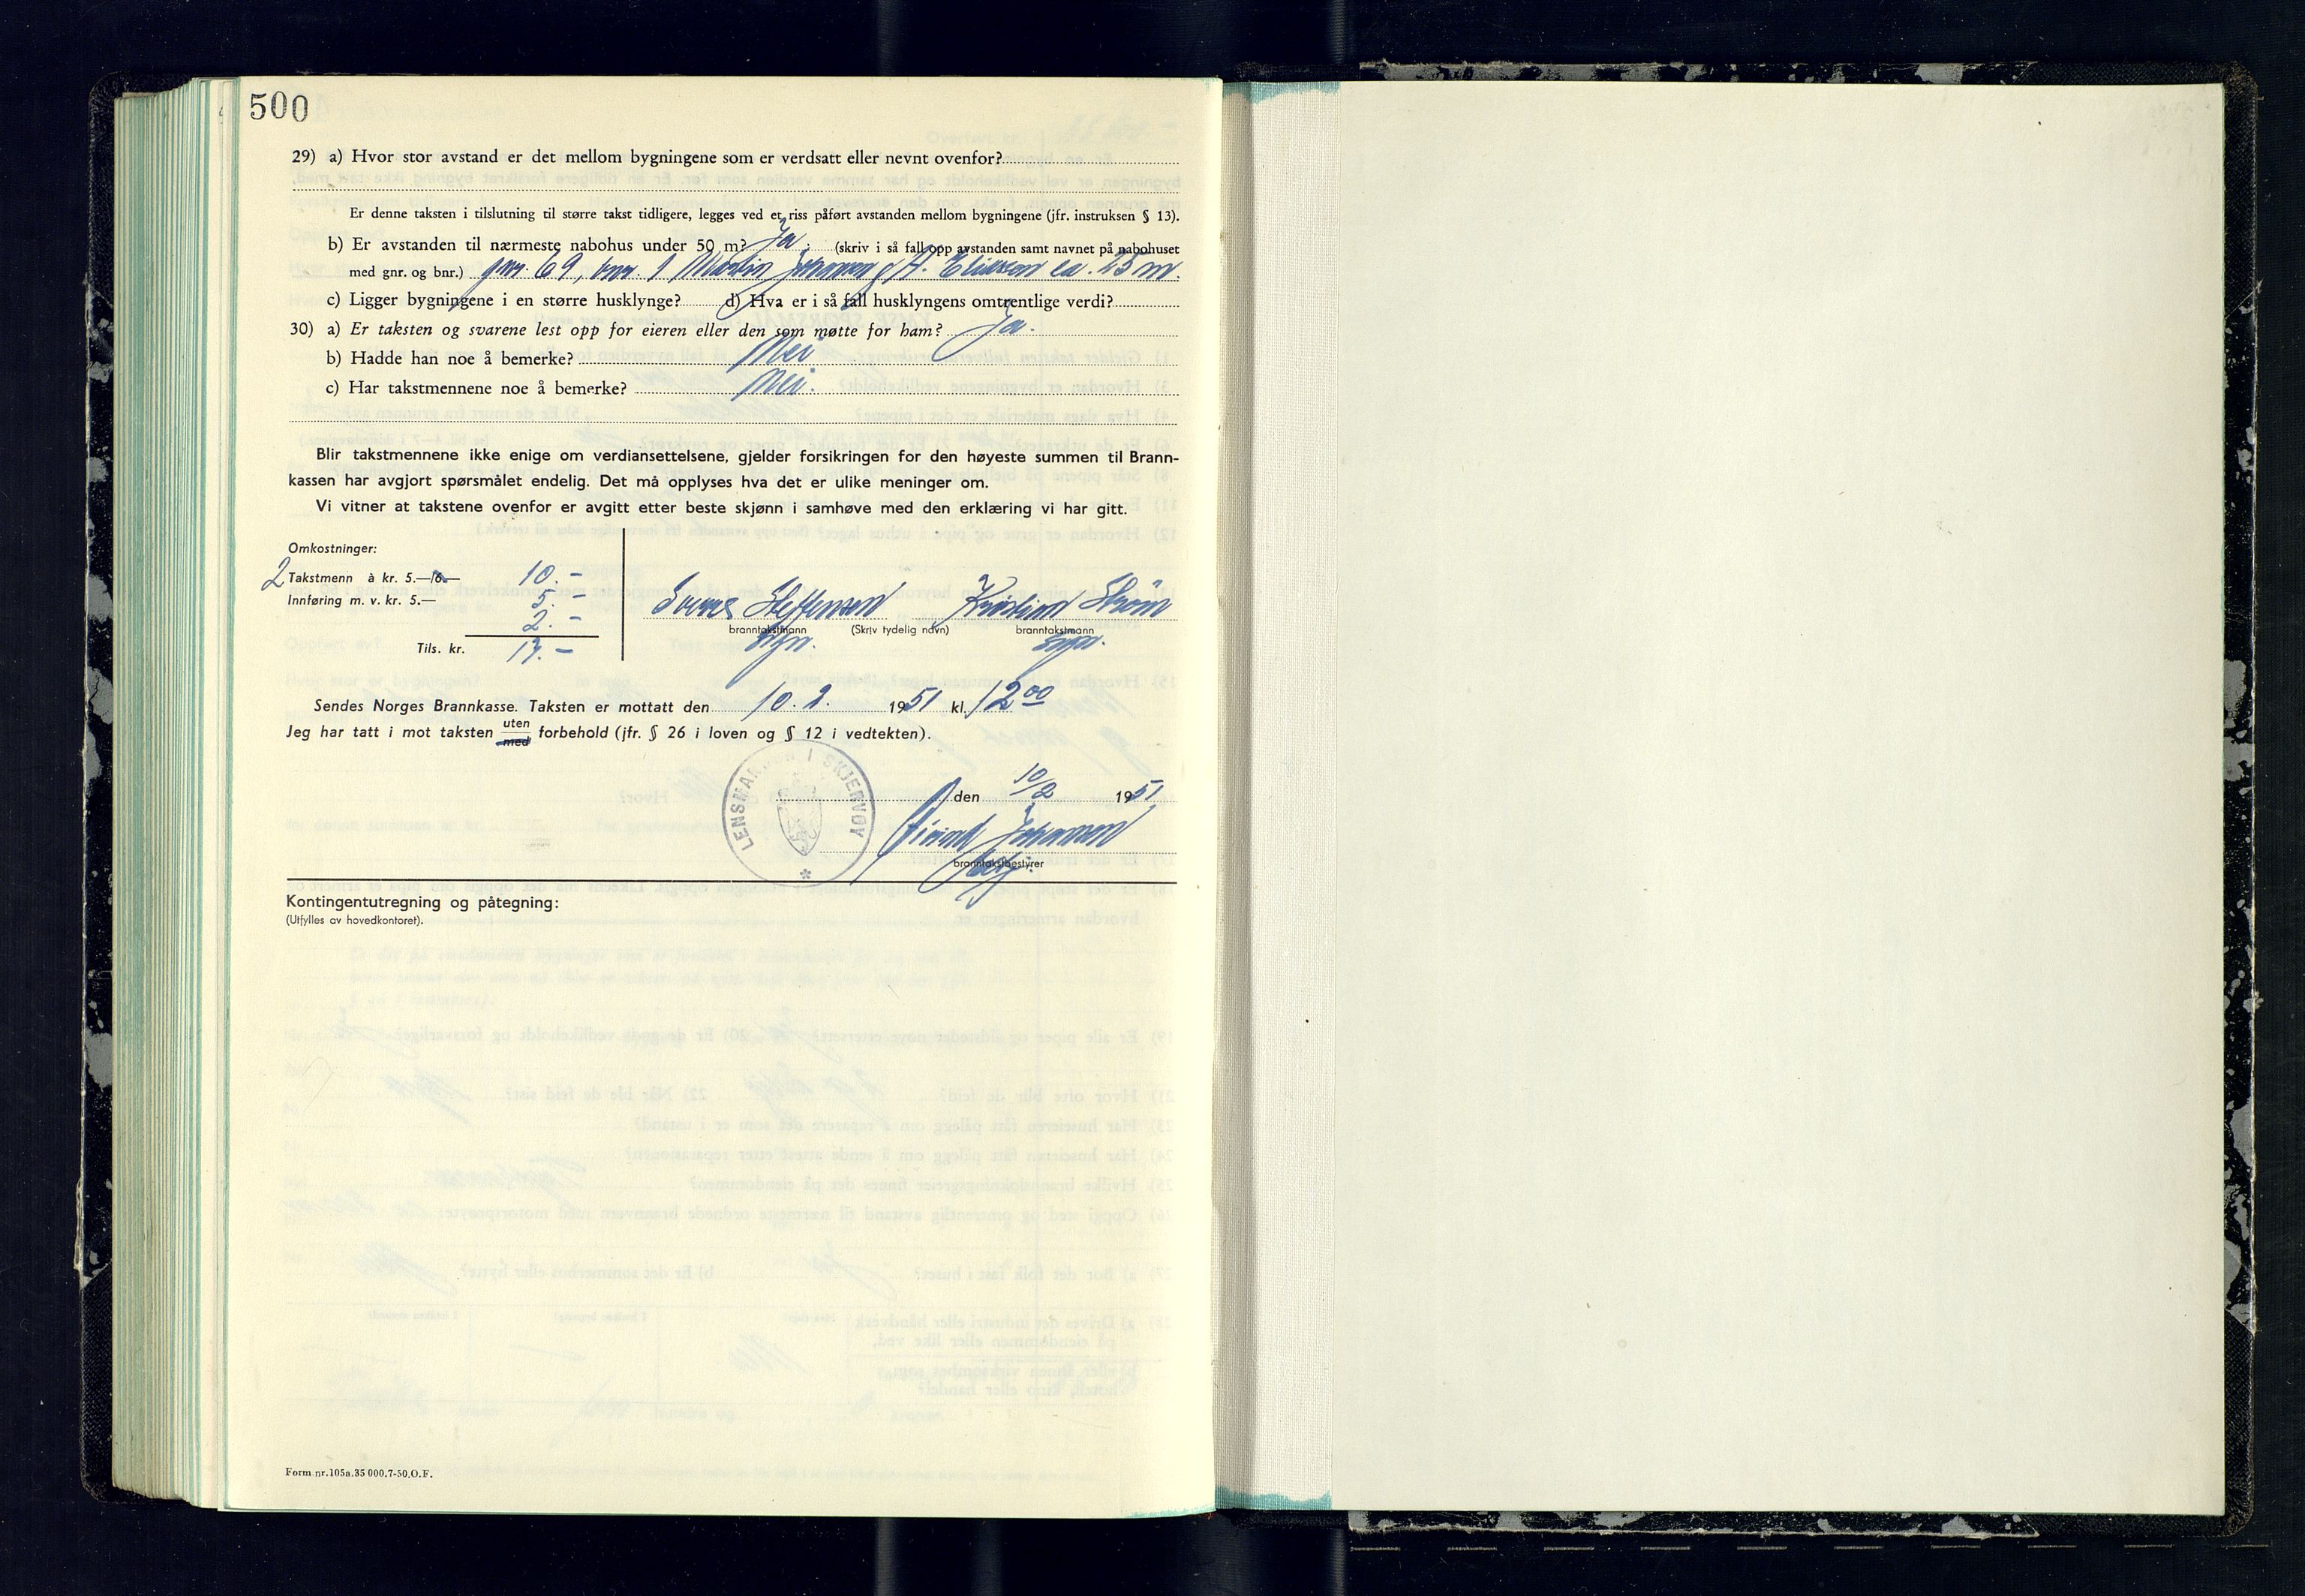 500
29) a) Hvor stor avstand er det mellom bygningene som er verdsatt eller nevnt ovenfor?
Er denne taksten i tilslutning til større takst tidligere, legges ved et riss påført avstanden mellom bygningene (jfr. instruksen § 13).
b) Er avstanden til nærmeste nabohus under 50 m? Ja. (skriv i så fall opp avstanden samt navnet på nabohuset
med gnr. og bnr.) gnr. 69, bnr. 1 Martin Johansen A. Eliassen ca. 25 m.
c) Ligger bygningene i en større husklynge? d) Hva er i så fall husklyngens omtrentlige verdi?
30) a) Er taksten og svarene lest opp for eieren eller den som møtte for ham? Ja.
b) Hadde han noe å bemerke? Nei
c) Har takstmennene noe å bemerke? Nei.
Blir takstmennene ikke enige om verdiansettelsene, gjelder forsikringen for den høyeste summen til Brann-
kassen har avgjort spørsmålet endelig. Det må opplyses hva det er ulike meninger om.
Vi vitner at takstene ovenfor er avgitt etter beste skjønn i samhøve med den erklæring vi har gitt.
Omkostninger:
2 Takstmenn à kr. 5.—/6.— 10.-
Innføring m. v. kr. 5.— 5.-
2.-
Tils. kr. 17.-
Sverre Steffensen Kristian Strøm
branntakstmann (Skriv tydelig navn) branntakstmann
sign. sign.
Sendes Norges Brannkasse. Taksten er mottatt den 10. 2. 1951 kl. 12 00
Jeg har tatt i mot taksten uten med forbehold (jfr. § 26 i loven og § 12 i vedtekten).
LENSMANNEN I SKJERVØY
den 10/2 1951
Johansen
branntakstbestyrer
Kontingentutregning og påtegning:
(Utfylles av hovedkontoret).
Form nr. 105a. 35 000. 7-50. O. F.